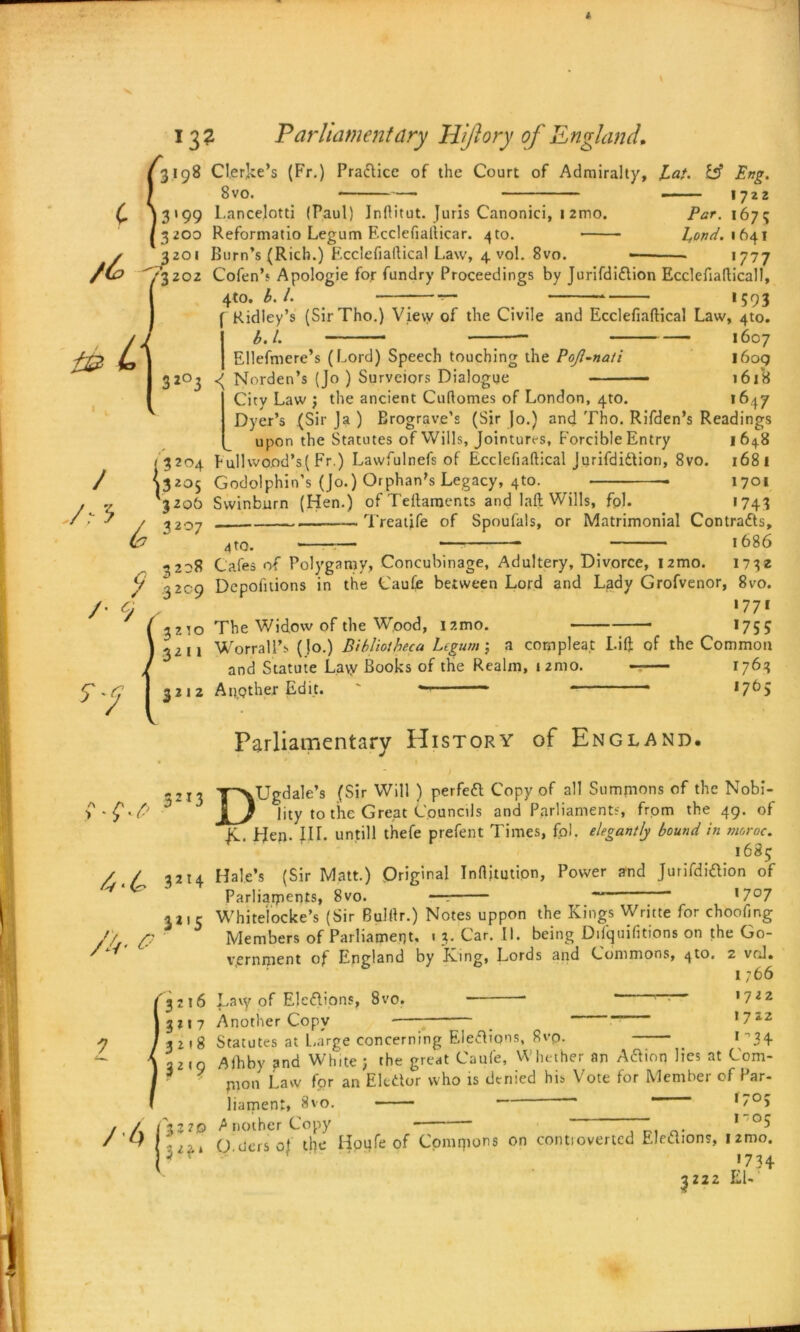 132 Parliamentary Hiſtory of England.
3198 Clerke's (Fr.) Practice of the Court of Admiralty, Lat. & Eng.
8vo. —— —— —— 1722
3199 Lancelotti (Paul) Inſtitut. Juris Canonici, 12mo. Par. 1675
3200 Reformatio Legum Eccleſiaſticar. 4to. —— Lond. 1641
3201 Burn's (Rich.) Eccleſiaſtical Law, 4 vol. 8vo. —— 1777
3202 Coſen's Apologie for ſundry Proceedings by Juriſdiction Eccleſiaſticall,
4to. b. l. —— —— 1593
Ridley's (Sir Tho.) View of the Civile and Eccleſiaſtical Law, 4to.
b. l. —— —— —— 1607
Elleſmere's (Lord) Speech touching the Poſt-nati 1609
3203 Norden's (Jo) Surveiors Dialogue —— 1618
City Law; the ancient Cuſtomes of London, 4to. 1647
Dyer's (Sir Ja) Brograve's (Sir Jo.) and Tho. Riſden's Readings
upon the Statutes of Wills, Jointures, Forcible Entry 1648
3204 Fullwood's (Fr.) Lawfulneſs of Eccleſiaſtical Juriſdiction, 8vo. 1681
3205 Godolphin's (Jo.) Orphan's Legacy, 4to. —— 1701
3206 Swinburn (Hen.) of Teſtaments and laſt Wills, fol. 1743
3207 —— —— Treatiſe of Spouſals, or Matrimonial Contracts,
4to. —— —— —— 1686
3208 Caſes of Polygamy, Concubinage, Adultery, Divorce, 12mo. 1732
3209 Depoſitions in the Cauſe between Lord and Lady Groſvenor, 8vo.
1771
3210 The Widow of the Wood, 12mo. —— 1755
3211 Worrall's (Jo.) Bibliotheca Legum; a compleat Liſt of the Common
and Statute Law Books of the Realm, 12mo. —— 1763
3212 Another Edit. —— —— 1765
Parliamentary HISTORY of ENGLAND.
3213 DUgdale's (Sir Will) perfect Copy of all Summons of the Nobi-
lity to the Great Councils and Parliaments, from the 49. of
K. Hen. III. untill theſe preſent Times, fol. elegantly bound in moroc.
1685
3214 Hale's (Sir Matt.) Original Inſtitution, Power and Juriſdiction of
Parliaments, 8vo. —— —— 1707
3215 Whitelocke's (Sir Bulſtr.) Notes uppon the Kings Writte for chooſing
Members of Parliament, 13. Car. II. being Diſquiſitions on the Go-
vernment of England by King, Lords and Commons, 4to. 2 vol.
1766
3216 Law of Elections, 8vo. —— —— 1722
3217 Another Copy —— —— 1722
3218 Statutes at Large concerning Elections, 8vo. —— 1734
3219 Aſhby and White; the great Cauſe, Whether an Action lies at Com-
mon Law for an Elector who is denied his Vote for Member of Par-
liament, 8vo. —— —— —— 1705
3220 Another Copy —— —— 1705
3221 Orders of the Houſe of Commons on controverted Elections, 12mo.
1734
3222 El-